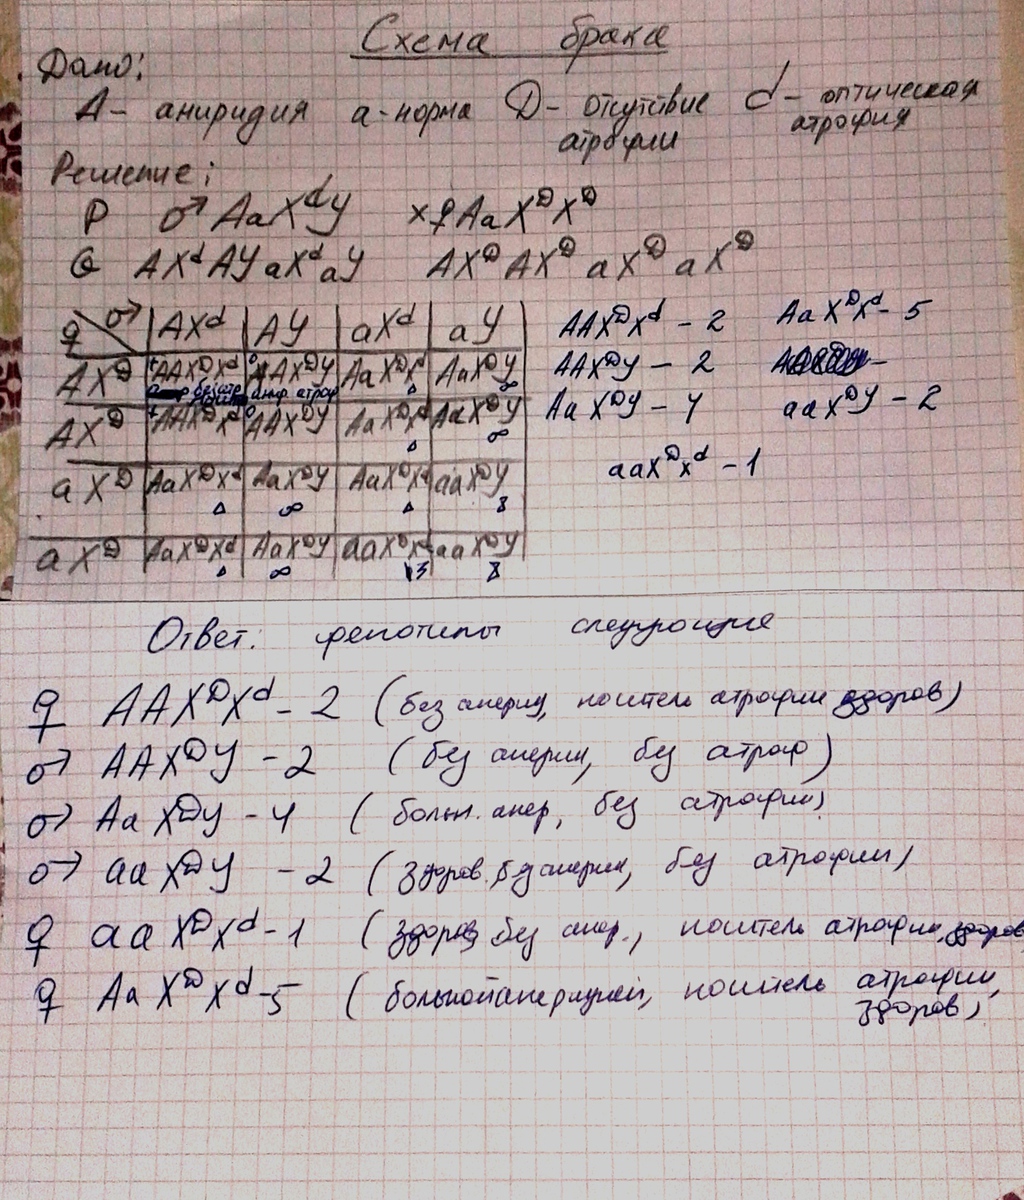 Схема брака
Дано:
А - аниридия а - норма D - отсутствие атрофии d - оптическая атрофия
Решение:
P ♂ AaX^dY × ♀ AaX^DX^D
G AX^d AY aX^d aY AX^D AX^D aX^D aX^D
♀ ♂ AX^d AY aX^d aY
AX^D AAX^DX^d AAX^DY AaX^DX^d AaX^DY
AX^D AAX^DX^d AAX^DY AaX^DX^d AaX^DY
aX^D AaX^DX^d AaX^DY AaX^DX^d aaX^DY
aX^D AaX^DX^d AaX^DY aaX^DX^d aaX^DY
AAX^DX^d - 2 AaX^DX^d - 5
AAX^DY - 2
AaX^DY - 4 aaX^DY - 2
aaX^DX^d - 1
Ответ: фенотипы следующие
♀ AAX^DX^d - 2 (без анерид, носитель атрофии здоров)
♂ AAX^DY - 2 (без анерии, без атроф)
♂ AaX^DY - 4 (больн. анер, без атрофии)
♂ aaX^DY - 2 (здоров. без анерии, без атрофии)
♀ aaX^DX^d - 1 (здоров, без анер., носитель атрофии, здоров
♀ AaX^DX^d - 5 (больной анеридией, носитель атрофии,
здоров)